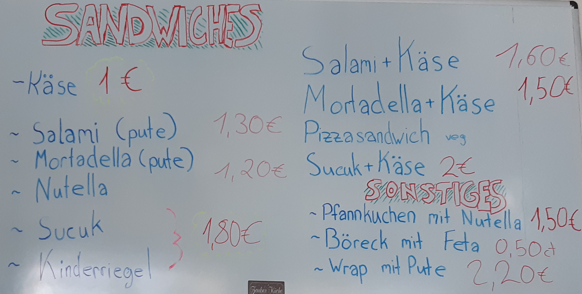 SANDWICHES
-Käse 1€
~ Salami (pute) 1,30€
~ Mortadella (pute) 1,20€
~ Nutella
~ Sucuk
~ Kinderriegel 1,80€
Salami + Käse 1,60€
Mortadella + Käse 1,50€
Pizzasandwich veg
Sucuk + Käse 2€
SONSTIGES
~ Pfannkuchen mit Nutella 1,50€
~ Böreck mit Feta 0,50ct
~ Wrap mit Pute 2,20€